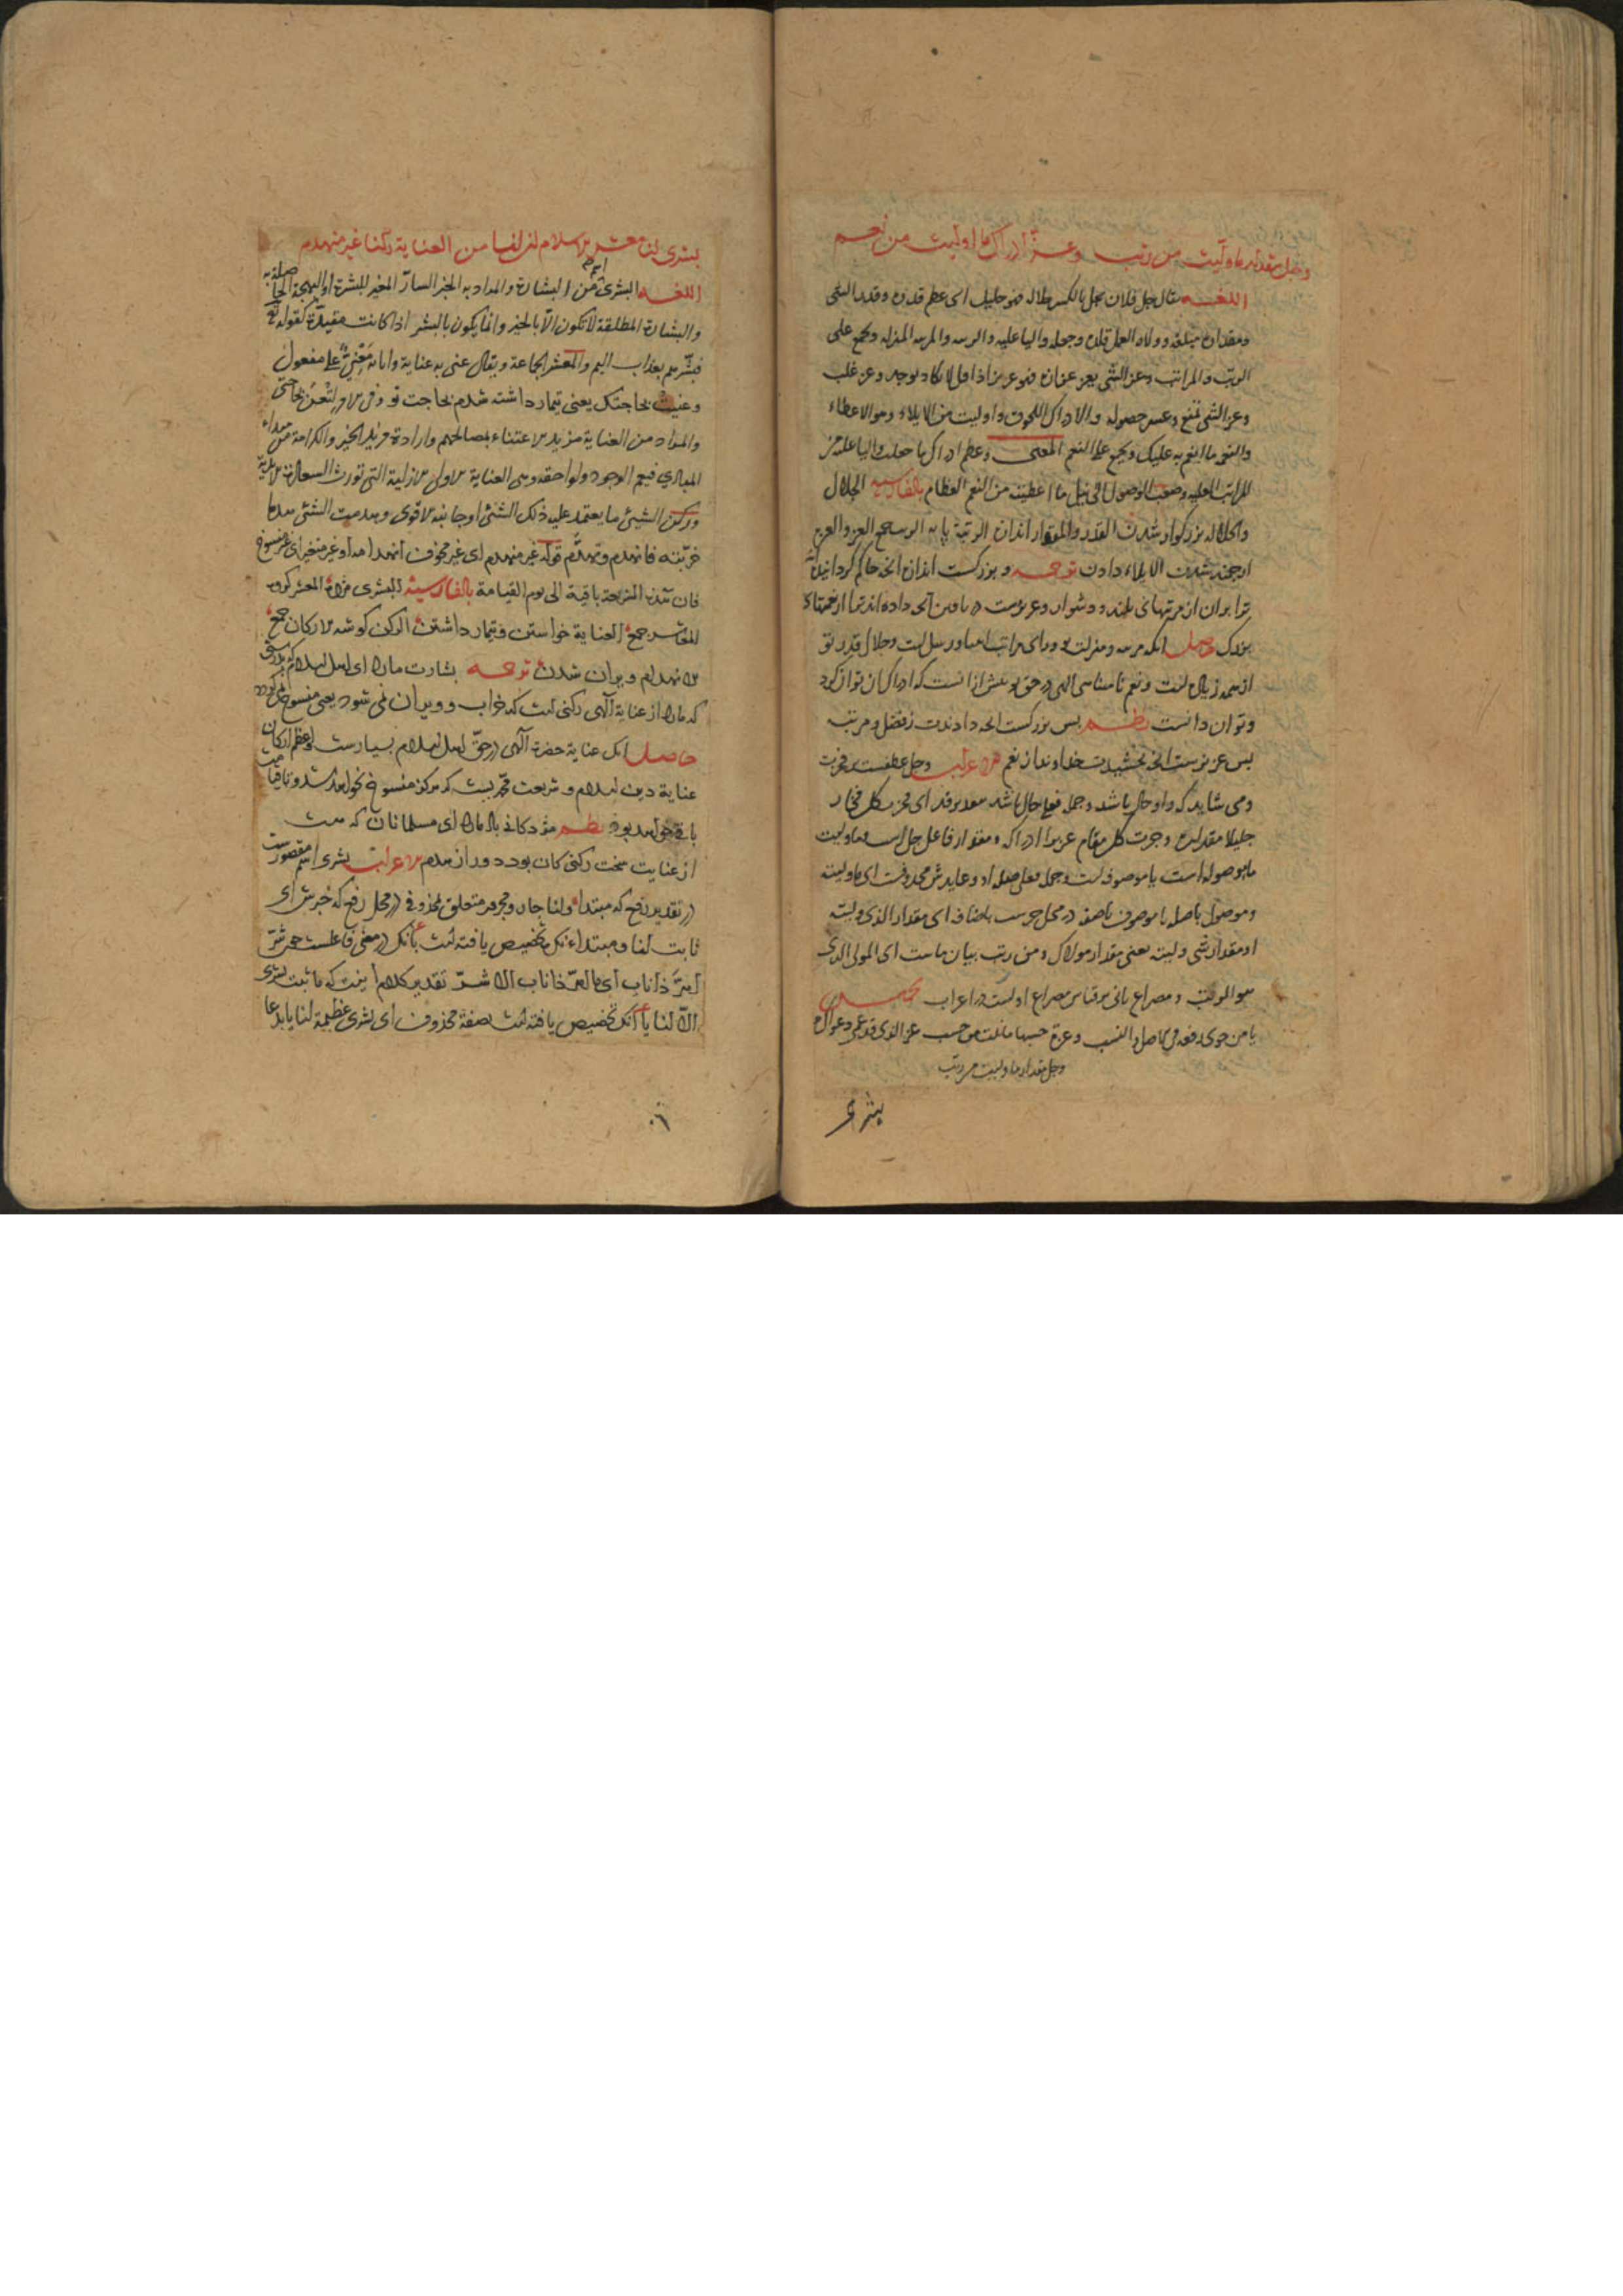 وجل مقدار ما وليت من رتب وعز ادراك ما اوليت من نعم
اللغه يقال جل فلان يجل بالكسر جلاله فهو جليل اى عظم قدره وقدر الشى
ومقداره مبلغه وولاه العمل قلده وجعله واليا عليه والرتبه والمرتبه المنزله وجمع على
الرتب والمراتب وعز الشى يعز عزازه فهو عزيز اذا قل لا يكاد يوجد وعز غلب
وعز الشى تمنع وعسر حصوله والادراك اللحوق واوليت من الايلاء وهو الاعطاء
والنعم ما انعم به عليك ويجمع على النعم المعنى وعظم ادراك ما جعلت واليا عليه من
المراتب العليه وصعب الوصول الى نيل ما اعطيت من النعم العظام بالفارسيه الجلال
والجلاله بزركوار شدن القدر والمقدار اندازه الرتبة پايه الرتب جمع العز والعزة
ارجمند شدن الايلاء دادن ترجمه و بزركست اندازه آنچه حاكم كردانيده
ترا بران از مرتبهاى بلند ودشوار وعزيزست دريافتن آنچه داده اند ترا از نعمتهاى
بزرك حاصل آنكه مرتبه ومنزلت تو وراى مراتب انبيا ورسل است وجلال قدر تو
از همه زياده است ونعم نامتناهى الهى در حق تو بيش از انست كه ادراك آن توان كرد
وتوان دانست نظم بس بزركست آنچه دادندت ز فضل ومرتبه
بس عزيزست آنچه بخشيدت خداوند از نعم الاعراب وجل عطفست بر حزت
ومى شايد كه واو حال باشد وجمله فعل حال باشد بتقدير قد اى حزت كل فخار
جليلا مقداره وجزت كل مقام عزيزا ادراكه ومقدار فاعل جل است وما وليت
ما موصوله است يا موصوفه است وجمله فعل صله او وعايدش محذوفست اى ما وليته
وموصول باصله يا موصوف باصفه در محل جرست باضافه اى مقدار الذى وليته
او مقدار شى وليته يعنى مقدار مولاك ومن رتب بيان ماست اى المولى الذى
هو الرتب ومصراع ثانى بر قياس مصراع اولست در اعراب تخميس
وجل مقدار ما وليت من رتب
بشرى
بشرى لنا معشر الاسلام ان لنا من العناية ركنا غير منهدم
اللغه البشرى اسم من البشارة والمراد به الخبر السار المغير للبشرة او البهجة الحاصلة به
والبشارة المطلقة لا تكون الا بالخير وانما يكون بالبشر اذا كانت مقيدة كقوله تع
فبشرهم بعذاب اليم والمعشر الجماعة ويقال عنى به عناية وانا به معنى على مفعول
وعنيت بحاجتك يعنى تيمار داشته شدم بحاجت تو وفى الامر لتعن بحاجتى
والمراد من العناية مزيد الاعتناء بمصالحهم وارادة مزيد الخير والكرامة من مبداء
المبادي فيعم الوجود ولواحقه وهى العناية الاولى الازلية التى تورث السعادة الابدية
وركن الشيئ ما يعتمد عليه ذلك الشئ او جانبه الاقوى وهدمت الشئ هدما
خربته فانهدم وتهدم قوله غير منهدم اى غير مخوف انهدامه او غير متغير اى غير منسوخ
فان هذه الشريعة باقية الى يوم القيامة بالفارسية البشرى مژده المعشر كروه
المعاشر جمع العناية خواستن وتيمار داشتن الركن كوشه الاركان جمع
الانهدام ويران شدن ترجمه بشارت مارا اى اهل اسلام بدرستى
كه مارا از عناية الهى ركنى است كه خراب وويران نمى شود يعنى منسوخ نمى كردد
حاصل آنكه عناية حضرة الهى در حق اهل اسلام بسيارست واعظم اركان
عناية دين اسلام وشريعت محمديست كه هركز منسوخ نخواهد شد وتا قيامت
باقى خواهد بود نظم مژدكانى باد مارا اى مسلمانان كه هست
از عنايت سخت ركنى كان بود دور از هدم الاعراب بشرى اسم مقصورست
در تقدير رفع كه مبتداء ولنا جار ومجرور متعلق محذوف در محل رفع كه خبرش اى
ثابت لنا ومبتداء نكره تخصيص يافته است بانك در معنى فاعلست چون شر
اهر ذا ناب اى ما اهر ذا ناب الا شر تقدير كلام اينست كه ما ثبت بشرى
الا لنا يا آنك تخصيص يافته است بصفة محذوف اى بشرى عظيمة لنا يا بدعا